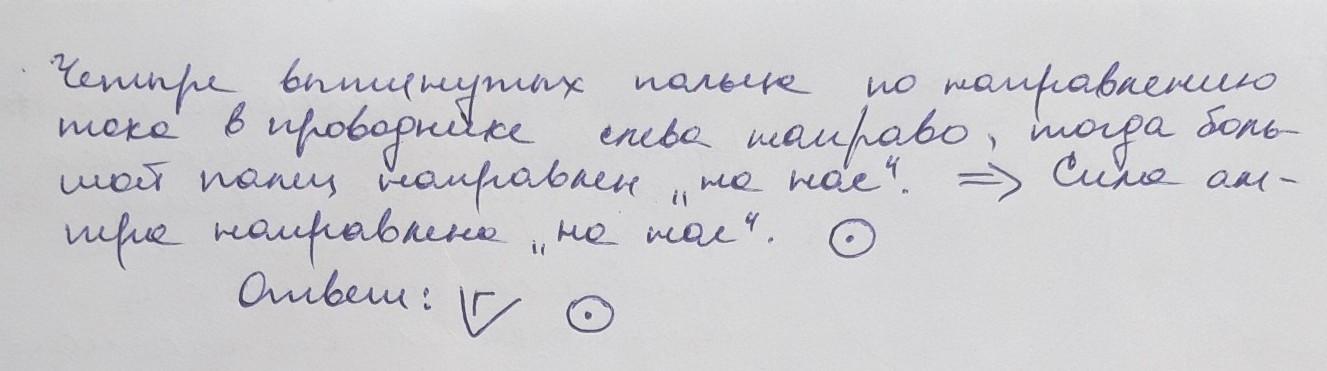 Четыре вытянутых пальца по направлению
тока в проводнике слева направо, тогда боль-
шой палец направлен „на нас“. ⇒ Сила ам-
пера направлена „на нас“. ⊙
Ответ: Г ⊙